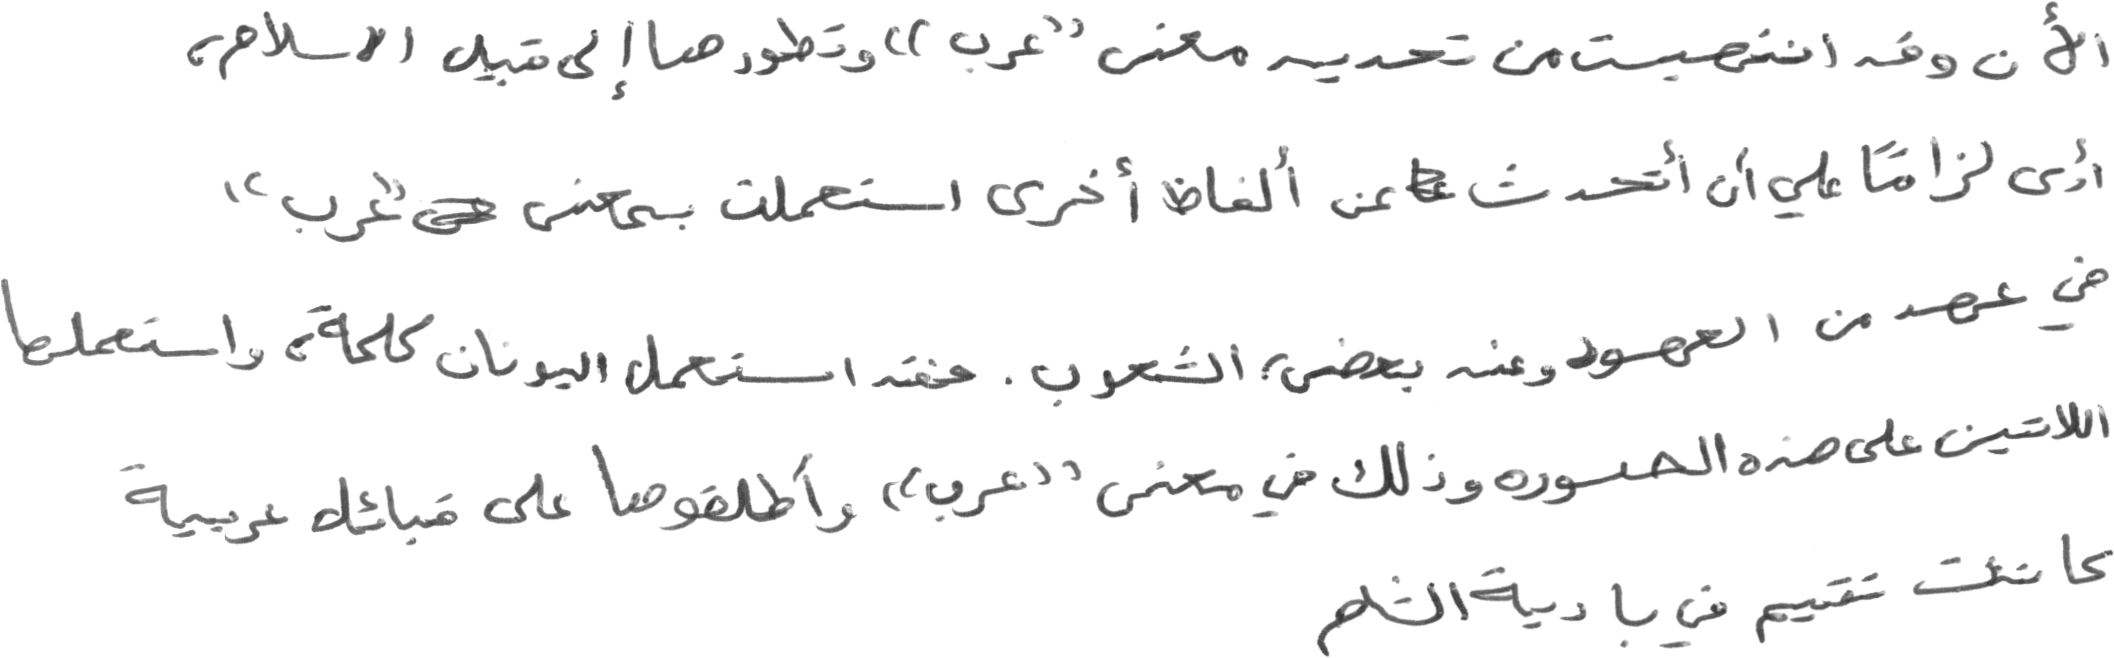 الأن وقد انتهيت من تحديد معنى "عرب" وتطورها إلى قبيل الاسلام،
أرى لزامًا علي أن أتحدث عن ألفاظ أخرى استعملت بمعنى "عرب"،
في عهد من العهود وعند بعض الشعوب. فقد استعمل اليونان كلمة، واستعملها
اللاتين على هذه الصوره وذلك في معنى "عرب" وأطلقوها على قبائل عربية
كانت تقيم في بادية الشام